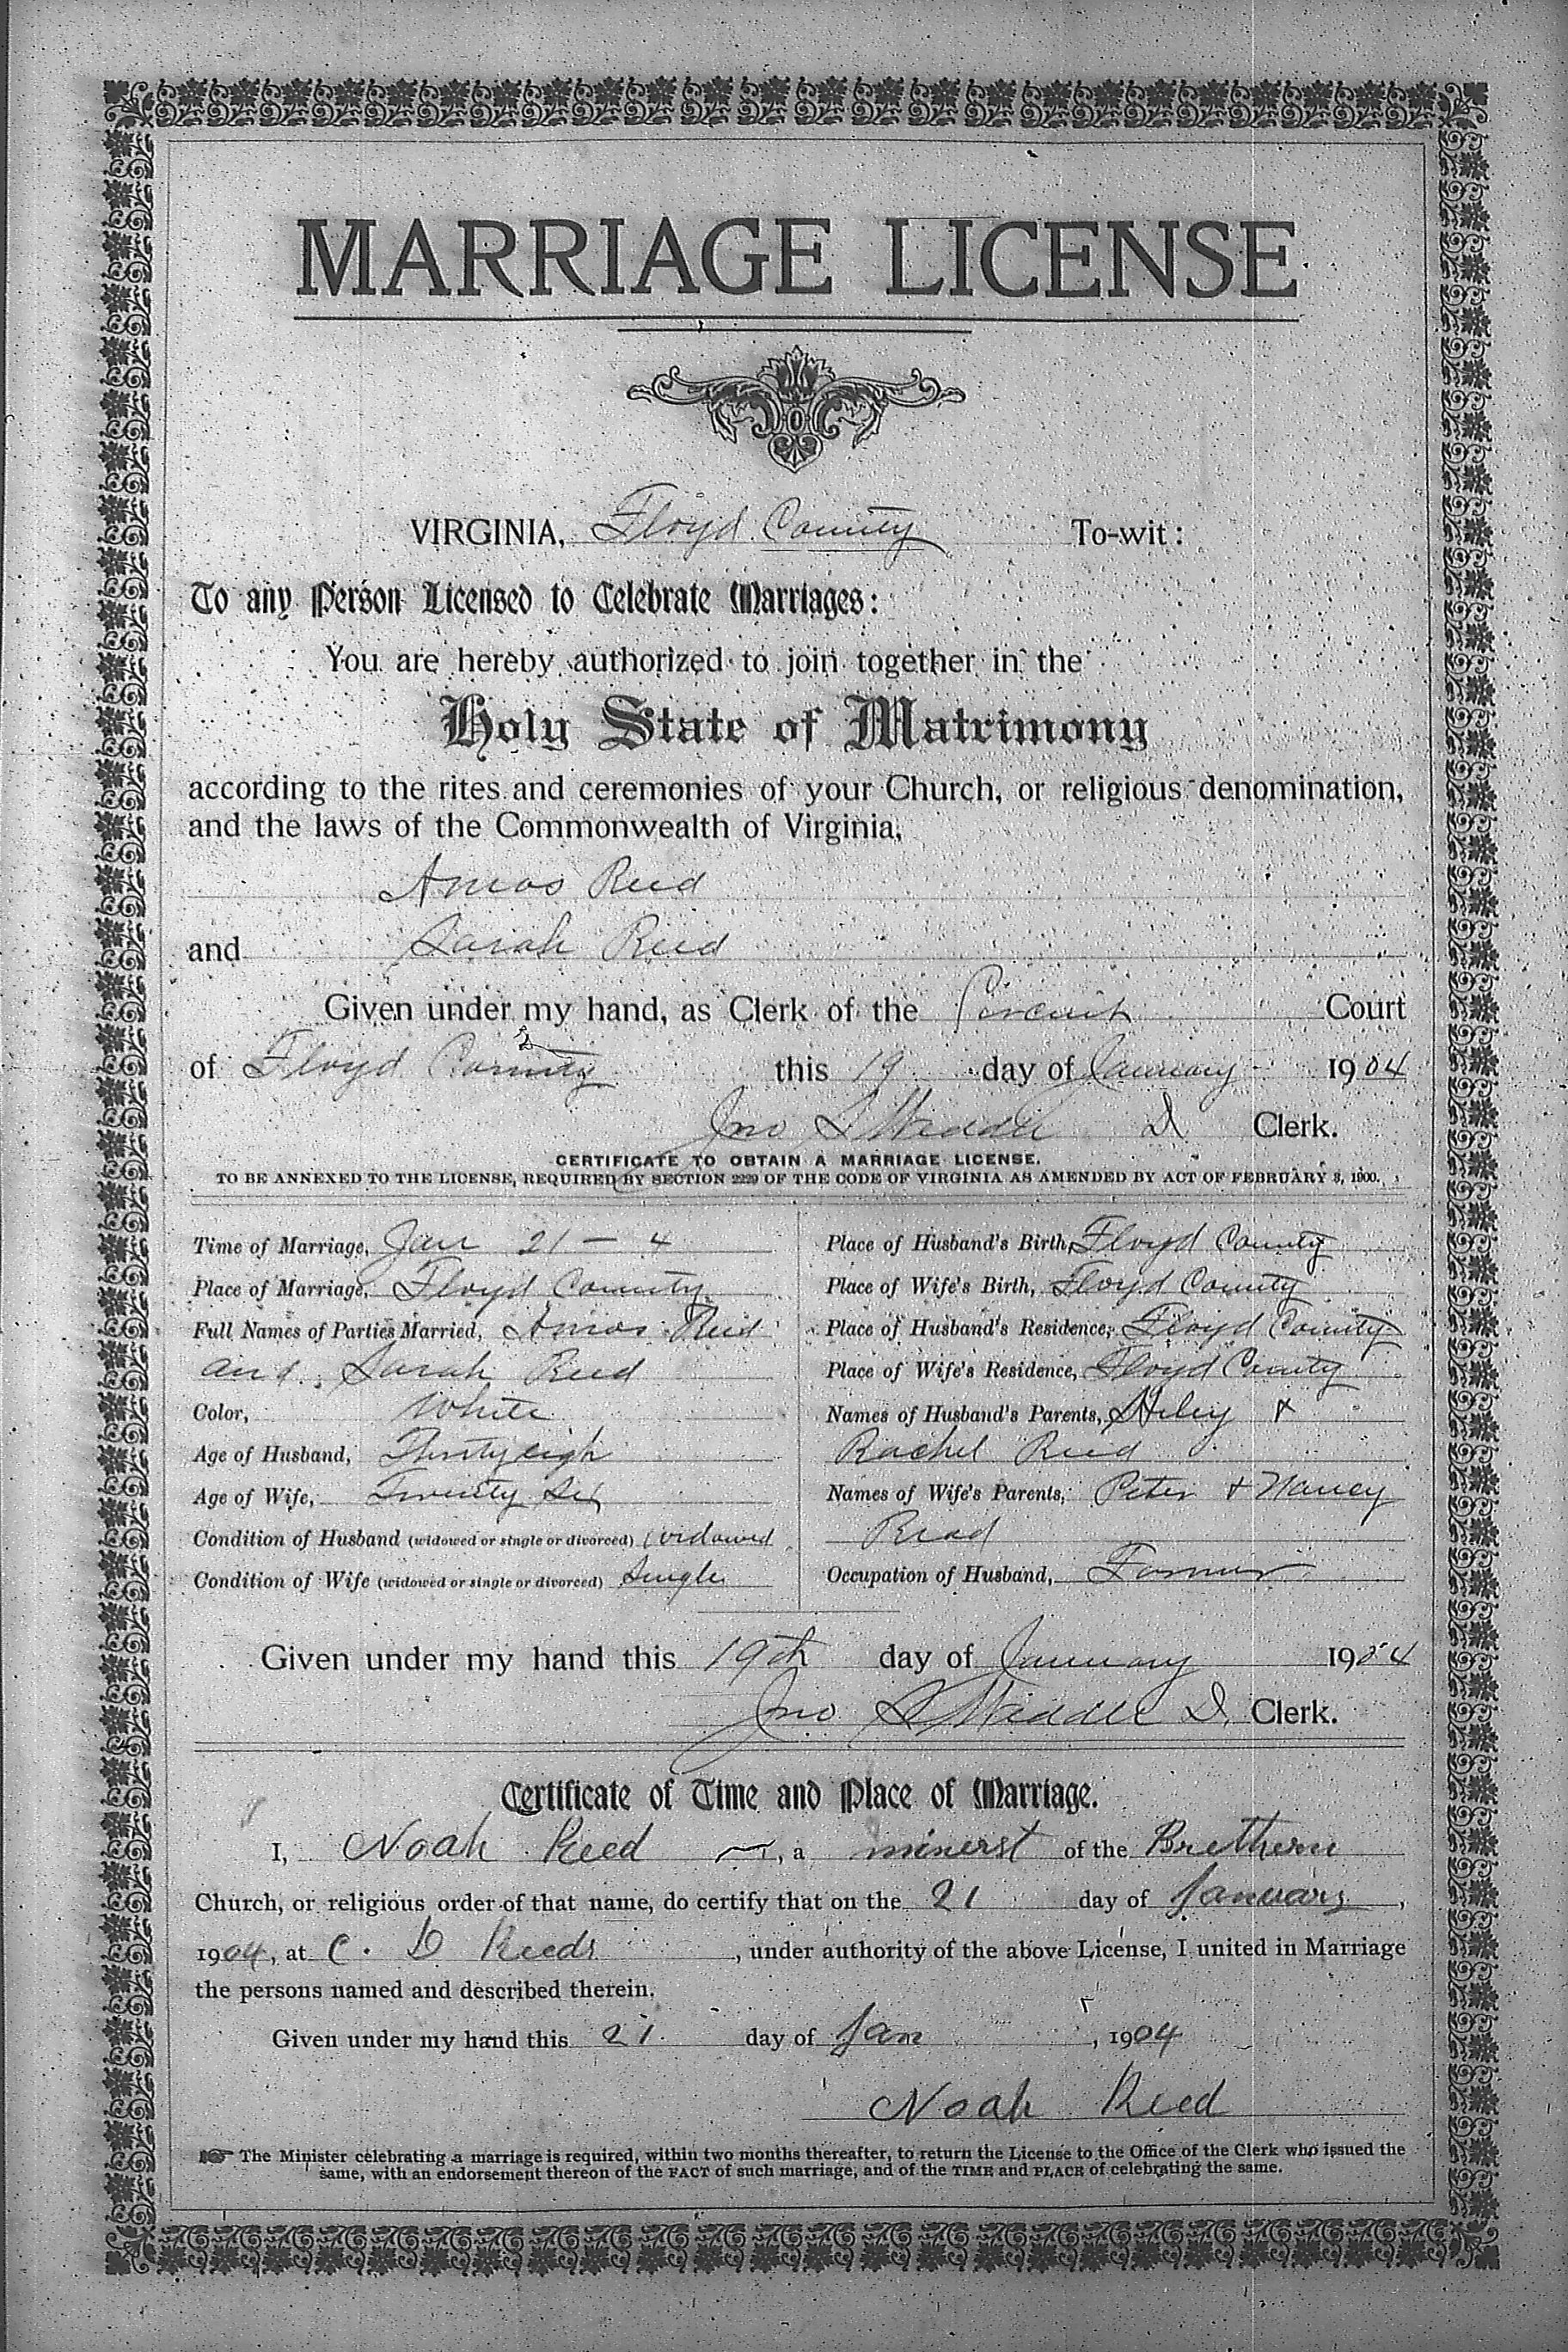 MARRIAGE LICENSE
VIRGINIA, Floyd County To-wit:
To any Person Licensed to Celebrate Marriages:
You are hereby authorized to join together in the
Holy State of Matrimony
according to the rites and ceremonies of your Church, or religious denomination,
and the laws of the Commonwealth of Virginia,
Amos Reed
and Sarah Reed
Given under my hand, as Clerk of the Circuit Court
of Floyd County this 19 day of January 1904
Jno S Weddle D Clerk.
CERTIFICATE TO OBTAIN A MARRIAGE LICENSE.
TO BE ANNEXED TO THE LICENSE, REQUIRED BY SECTION 2229 OF THE CODE OF VIRGINIA AS AMENDED BY ACT OF FEBRUARY 3, 1900.
Time of Marriage, Jan 21 - 4
Place of Marriage, Floyd County
Full Names of Parties Married, Amos Reed
and Sarah Reed
Color, White
Age of Husband, Thirty eigh
Age of Wife, Twenty Six
Condition of Husband (widowed or single or divorced) widowed
Condition of Wife (widowed or single or divorced) Single
Place of Husband's Birth, Floyd County
Place of Wife's Birth, Floyd County
Place of Husband's Residence, Floyd County
Place of Wife's Residence, Floyd County
Names of Husband's Parents, &
Rachel Reed
Names of Wife's Parents, Peter & Nancy
Reed
Occupation of Husband, Farmer
Given under my hand this 19th day of January 1904
Jno S Weddle D. Clerk.
Certificate of Time and Place of Marriage.
I, Noah Reed, a minerst of the Brethern
Church, or religious order of that name, do certify that on the 21 day of January,
1904, at C. D Reeds, under authority of the above License, I united in Marriage
the persons named and described therein.
Given under my hand this 21 day of Jan, 1904
Noah Reed
☞ The Minister celebrating a marriage is required, within two months thereafter, to return the License to the Office of the Clerk who issued the
same, with an endorsement thereon of the FACT of such marriage, and of the TIME and PLACE of celebrating the same.